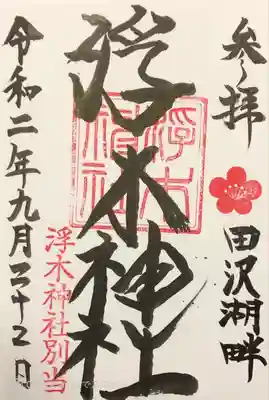 参拝
田沢湖畔
浮木神社
浮木神社
令和二年九月二十二日
浮木神社別当